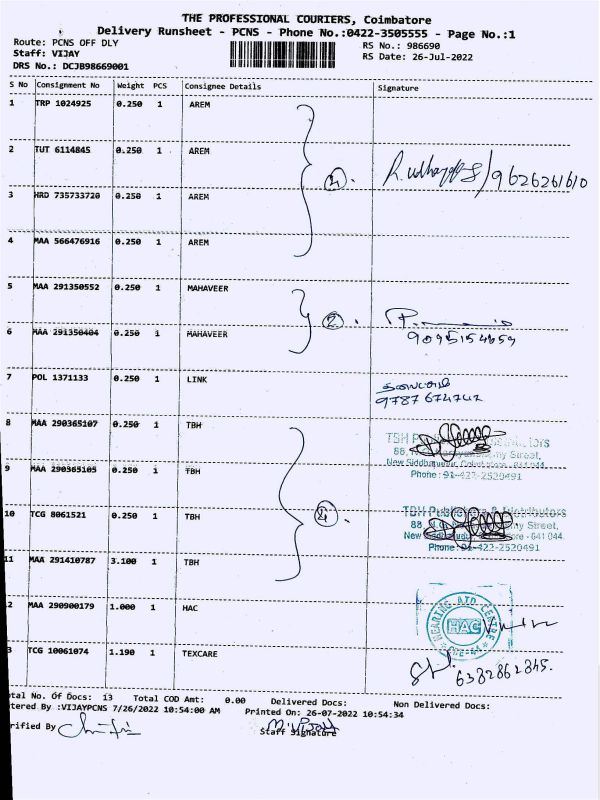 THE PROFESSIONAL COURIERS, Coimbatore
Delivery Runsheet - PCNS - Phone No.:0422-3505555 - Page No.:1
Route: PCNS OFF DLY
RS No.: 986690
Staff: VIJAY
RS Date: 26-Jul-2022
DRS No.: DCJB98669001
S No Consignment No Weight PCS Consignee Details Signature
1 TRP 1024925 0.250 1 AREM
2 TUT 6114845 0.250 1 AREM
4. 9626261610
3 HRD 735733720 0.250 1 AREM
4 MAA 566476916 0.250 1 AREM
5 MAA 291350552 0.250 1 MAHAVEER
2.
6 MAA 291350404 0.250 1 MAHAVEER
9095154659
7 POL 1371133 0.250 1 LINK
9787674742
8 MAA 290365107 0.250 1 TBH
TBH Publishers & Distributors
88, Street,
New Siddhapudur, Coimbatore - 641 044.
Phone: 91-422-2520491
9 MAA 290365105 0.250 1 TBH
10 TCG 8061521 0.250 1 TBH
4.
TBH Publishers & Distributors
88, Street,
New Siddhapudur, Coimbatore - 641 044.
Phone: 91-422-2520491
11 MAA 291410787 3.100 1 TBH
2 MAA 290900179 1.000 1 HAC
HEARING AID CENTRE
HAC
CBE-44
3 TCG 10061074 1.190 1 TEXCARE
6382862845.
otal No. Of Docs: 13 Total COD Amt: 0.00 Delivered Docs: Non Delivered Docs:
tered By :VIJAYPCNS 7/26/2022 10:54:00 AM Printed On: 26-07-2022 10:54:34
rified By
M.VIJAY
Staff Signature